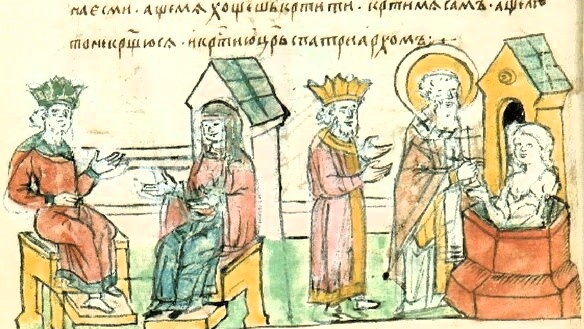 на есми · аще мѧ хощешь кр҃тити · кр҃ти мѧ самъ · аще ли
то не кр҃щюсѧ · и кр҃ти ю цр҃ь с патреархомъ :